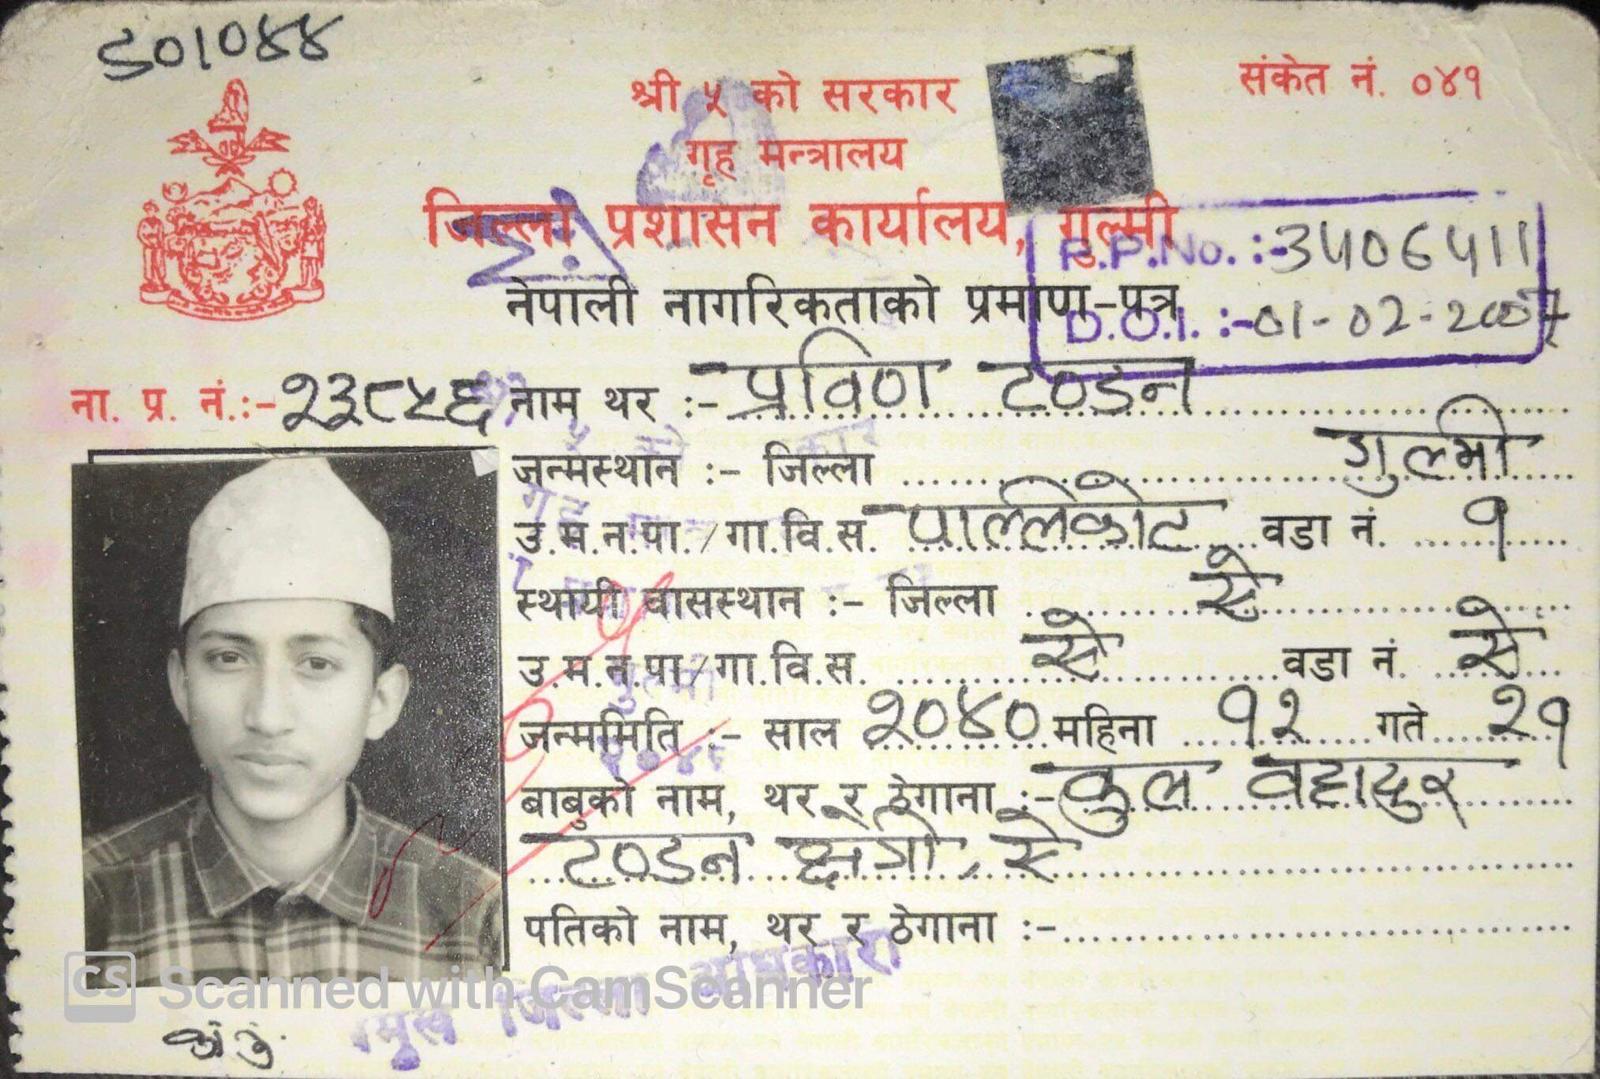 श्री ५ को सरकार
संकेत नं. ०४१
गृह मन्त्रालय
जिल्ला प्रशासन कार्यालय, गुल्मी
P.P.No. :- 3406411
नेपाली नागरिकताको प्रमाण-पत्र
D.O.I. :- 01-02-2007
ना. प्र. नं.:- २३८५६ नाम थर :- प्रविण टण्डन
जन्मस्थान :- जिल्ला गुल्मी
उ.म.न.पा./गा.वि.स. पाल्लिकोट वडा नं. १
स्थायी वासस्थान :- जिल्ला ऐ
उ.म.न.पा/गा.वि.स. ऐ वडा नं. ऐ
जन्ममिति :- साल २०४० महिना १२ गते २१
बाबुको नाम, थर र ठेगाना :- कुल बहादुर
टण्डन क्षेत्री, ऐ
पतिको नाम, थर र ठेगाना :-
CS Scanned with CamScanner
प्रमुख जिल्ला अधिकारी